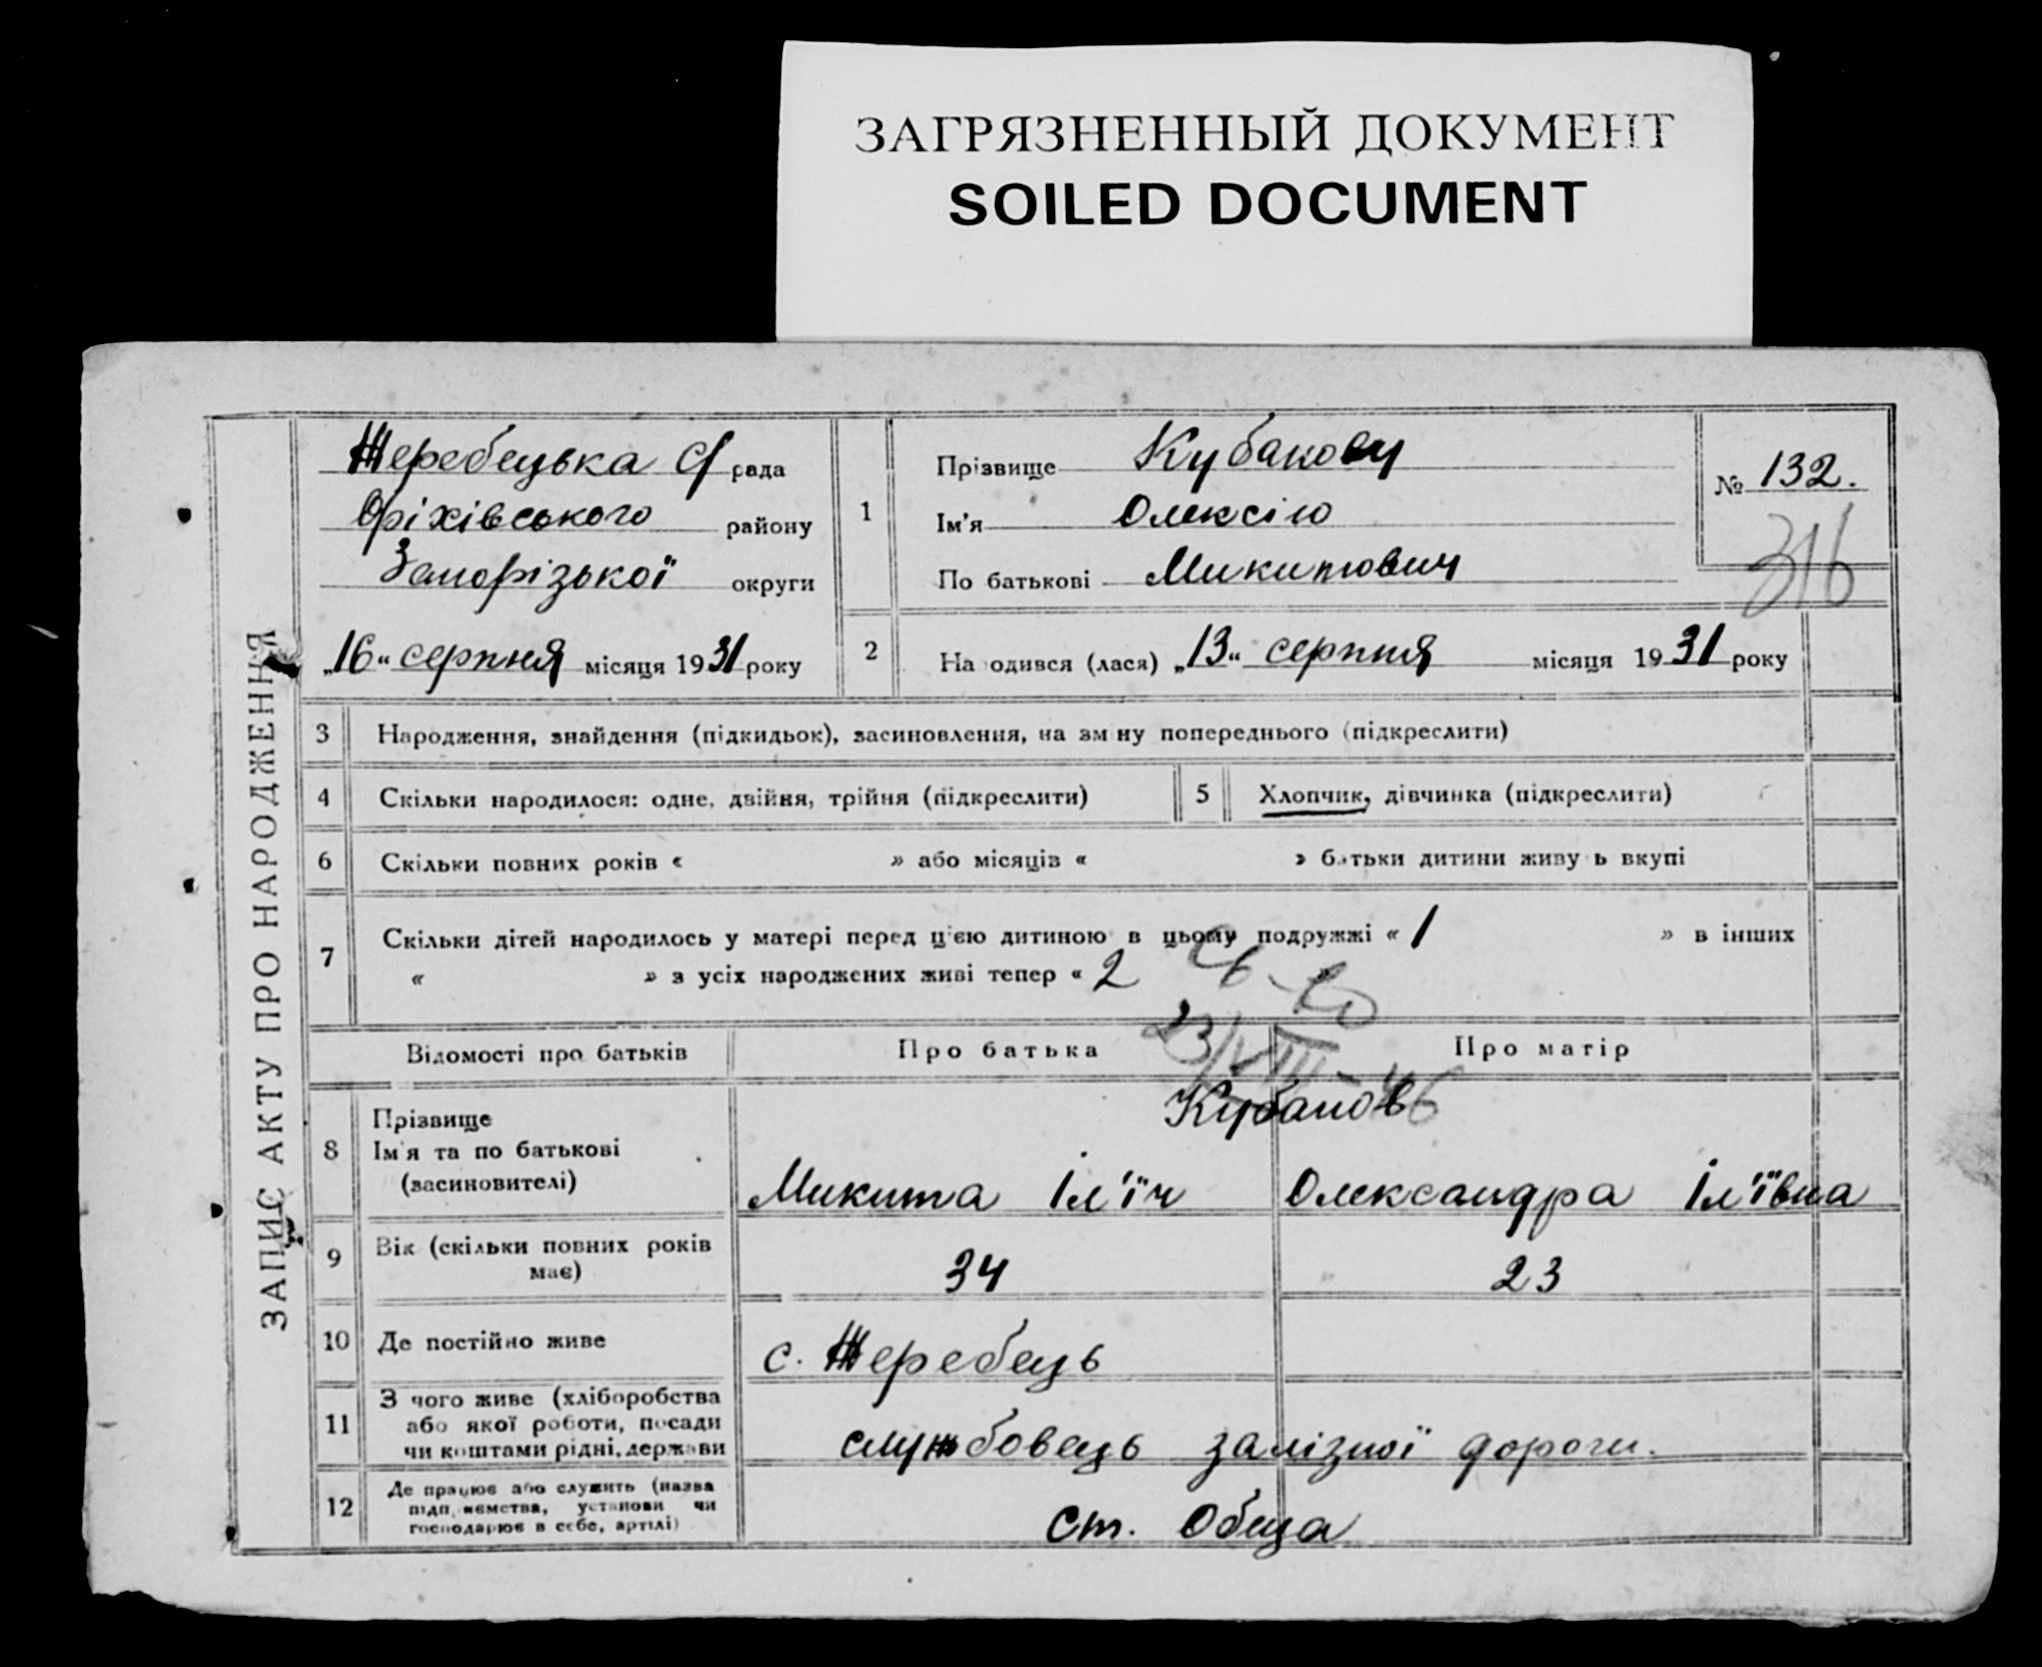 ЗАГРЯЗНЕННЫЙ ДОКУМЕНТ
SOILED DOCUMENT
ЗАПИС АКТУ ПРО НАРОДЖЕННЯ
Жеребецька с/рада
Оріхівського району
Запорізької округи
„16“ серпня місяця 1931 року
1
Прізвище Кубанову
Ім'я Олексію
По батькові Микитович
№ 132.
316
2 На одився (лася) „13“ серпня місяця 1931 року
3 Народження, знайдення (підкидьок), засиновлення, на зм ну попереднього (підкреслити)
4 Скільки народилося: одне, двійня, трійня (підкреслити) 5 Хлопчик, дівчинка (підкреслити)
6 Скільки повних років « » або місяців « » батьки дитини живу ь вкупі
7 Скільки дітей народилось у матері перед цією дитиною в цьому подружжі « 1 » в інших
« » з усіх народжених живі тепер « 2
23/VIII-46
Відомості про батьків Про батька Про матір
8 Прізвище
Ім'я та по батькові
(засиновителі)
Кубанов
Микита Іл'їч Олександра Іл'ївна
9 Вік (скільки повних років
має)
34 23
10 Де постійно живе с. Жеребець
11 З чого живе (хліборобства
або якої роботи, посади
чи коштами рідні, держави
службовець залізної дороги.
12 Де працює або служить (назва
підп иємства, установи чи
господарює в себе, артілі)
ст. Обща